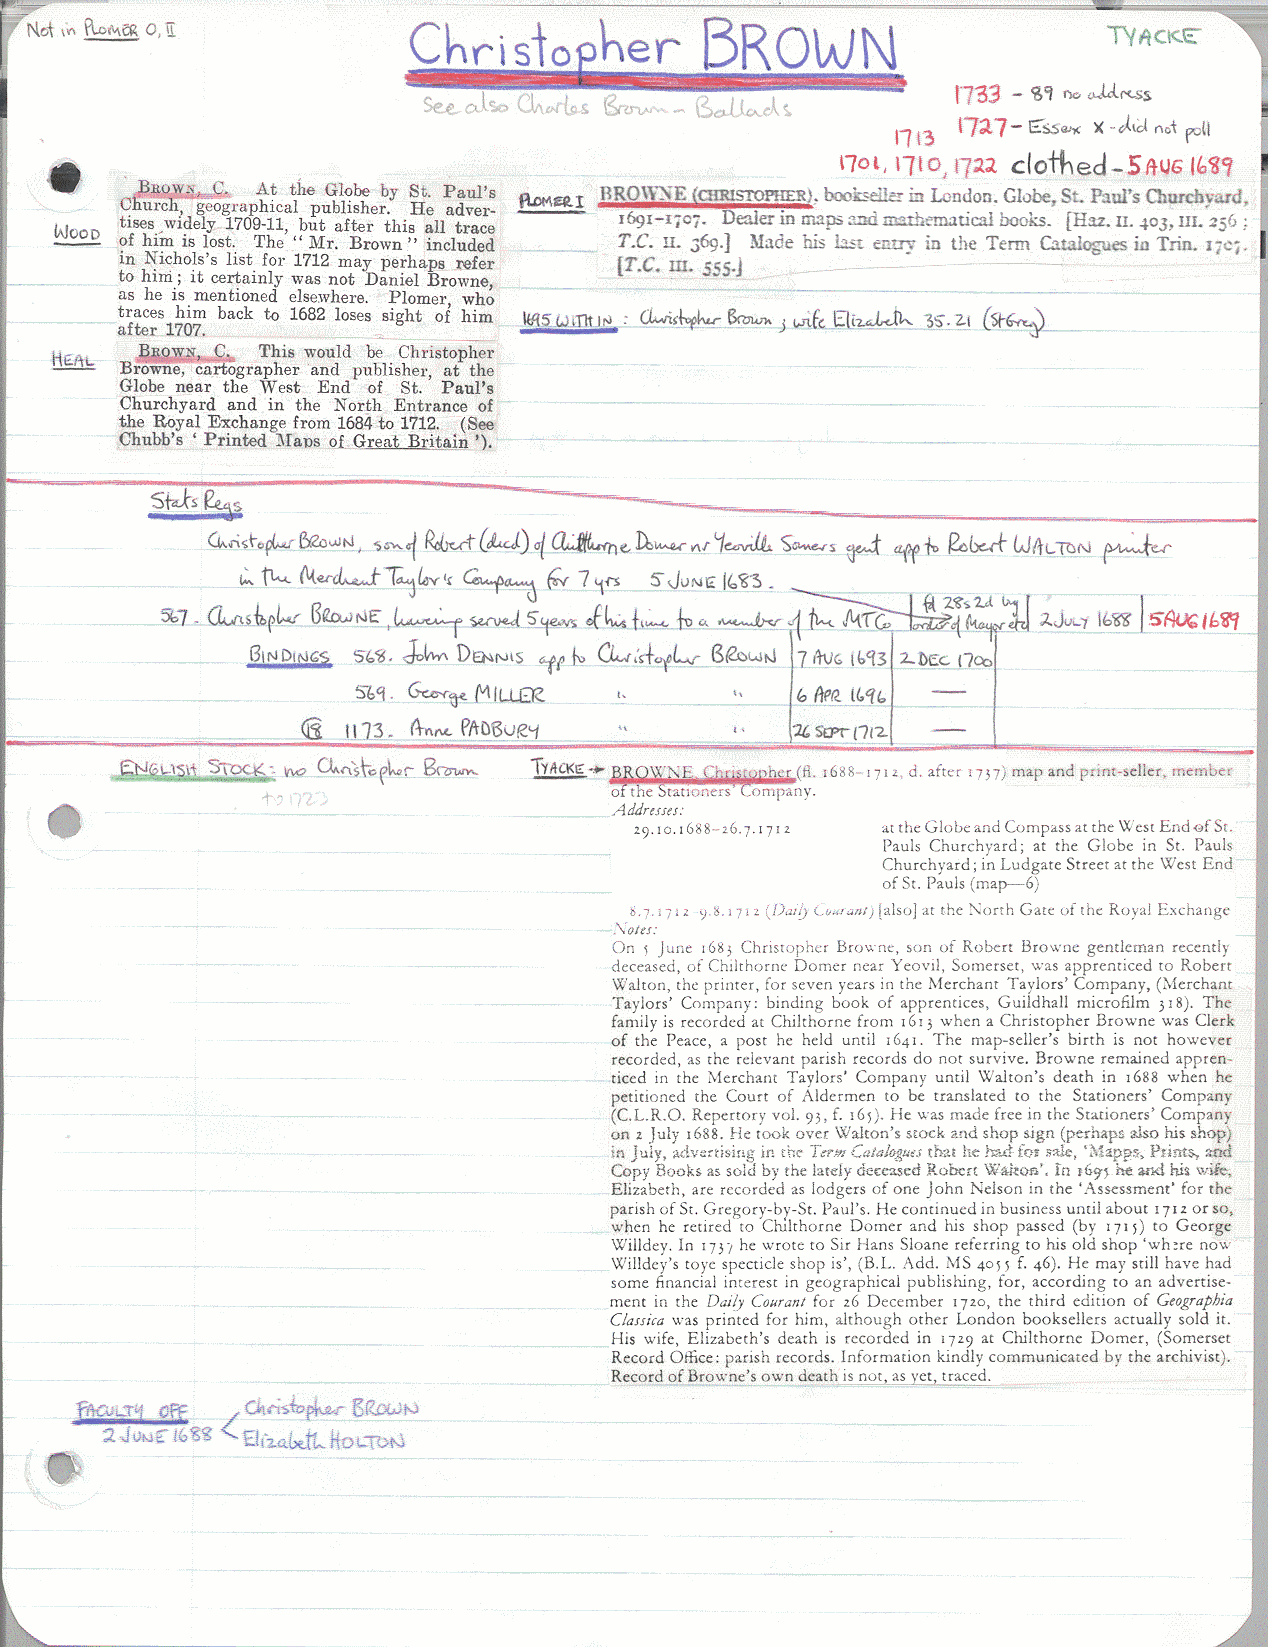 Not in PLOMER O, II
Christopher BROWN
TYACKE
See also Charles Brown - Ballads
1733 - 89 no address
1713 1727 - Essex X - did not poll
1701, 1710, 1722 clothed - 5 AUG 1689
WOOD
BROWN, C. At the Globe by St. Paul's
Church, geographical publisher. He adver-
tises widely 1709-11, but after this all trace
of him is lost. The " Mr. Brown " included
in Nichols's list for 1712 may perhaps refer
to him; it certainly was not Daniel Browne,
as he is mentioned elsewhere. Plomer, who
traces him back to 1682 loses sight of him
after 1707.
PLOMER I
BROWNE (CHRISTOPHER), bookseller in London, Globe, St. Paul's Churchyard,
1691-1707. Dealer in maps and mathematical books. [Haz. II. 403, III. 256;
T.C. II. 369.] Made his last entry in the Term Catalogues in Trin. 1707.
[T.C. III. 555.]
1695 WITHIN : Christopher Brown ; wife Elizabeth 35.21 (St Greg)
HEAL
BROWN, C. This would be Christopher
Browne, cartographer and publisher, at the
Globe near the West End of St. Paul's
Churchyard and in the North Entrance of
the Royal Exchange from 1684 to 1712. (See
Chubb's ' Printed Maps of Great Britain ').
Stats Regs
Christopher BROWN, son of Robert (decd) of Chilthorne Domer nr Yeoville Somers gent app to Robert WALTON printer
in the Merchant Taylor's Company for 7 yrs 5 JUNE 1683.
567. Christopher BROWNE, having served 5 years of his time to a member of the MTCo fd 28s 2d by order of Mayor etc 2 JULY 1688 5 AUG 1689
BINDINGS 568. John DENNIS app to Christopher BROWN 7 AUG 1693 2 DEC 1700
569. George MILLER " " 6 APR 1696 —
18 1173. Anne PADBURY " " 26 SEPT 1712 —
ENGLISH STOCK: no Christopher Brown
to 1723
TYACKE → BROWNE, Christopher (fl. 1688-1712, d. after 1737) map and print-seller, member
of the Stationers' Company.
Addresses:
29.10.1688-26.7.1712 at the Globe and Compass at the West End of St.
Pauls Churchyard; at the Globe in St. Pauls
Churchyard; in Ludgate Street at the West End
of St. Pauls (map—6)
8.7.1712-9.8.1712 (Daily Courant) [also] at the North Gate of the Royal Exchange
Notes:
On 5 June 1683 Christopher Browne, son of Robert Browne gentleman recently
deceased, of Chilthorne Domer near Yeovil, Somerset, was apprenticed to Robert
Walton, the printer, for seven years in the Merchant Taylors' Company, (Merchant
Taylors' Company: binding book of apprentices, Guildhall microfilm 318). The
family is recorded at Chilthorne from 1613 when a Christopher Browne was Clerk
of the Peace, a post he held until 1641. The map-seller's birth is not however
recorded, as the relevant parish records do not survive. Browne remained appren-
ticed in the Merchant Taylors' Company until Walton's death in 1688 when he
petitioned the Court of Aldermen to be translated to the Stationers' Company
(C.L.R.O. Repertory vol. 93, f. 165). He was made free in the Stationers' Company
on 2 July 1688. He took over Walton's stock and shop sign (perhaps also his shop)
in July, advertising in the Term Catalogues that he had for sale, 'Mapps, Prints, and
Copy Books as sold by the lately deceased Robert Walton'. In 1695 he and his wife,
Elizabeth, are recorded as lodgers of one John Nelson in the 'Assessment' for the
parish of St. Gregory-by-St. Paul's. He continued in business until about 1712 or so,
when he retired to Chilthorne Domer and his shop passed (by 1715) to George
Willdey. In 1737 he wrote to Sir Hans Sloane referring to his old shop 'where now
Willdey's toye specticle shop is', (B.L. Add. MS 4055 f. 46). He may still have had
some financial interest in geographical publishing, for, according to an advertise-
ment in the Daily Courant for 26 December 1720, the third edition of Geographia
Classica was printed for him, although other London booksellers actually sold it.
His wife, Elizabeth's death is recorded in 1729 at Chilthorne Domer, (Somerset
Record Office: parish records. Information kindly communicated by the archivist).
Record of Browne's own death is not, as yet, traced.
FACULTY OFF Christopher BROWN
2 JUNE 1688 < Elizabeth HOLTON